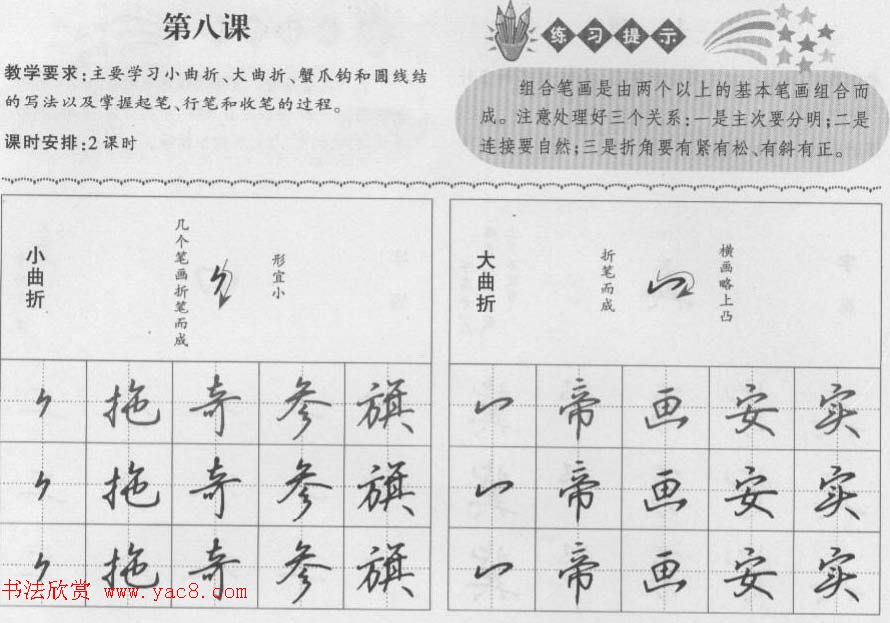 第八课
教学要求:主要学习小曲折、大曲折、蟹爪钩和圆线结
的写法以及掌握起笔、行笔和收笔的过程。
课时安排:2课时
练习提示
组合笔画是由两个以上的基本笔画组合而
成。注意处理好三个关系:一是主次要分明;二是
连接要自然;三是折角要有紧有松、有斜有正。
小曲折
几个笔画折笔而成
形宜小
拖 奇 参 旗
拖 奇 参 旗
拖 奇 参 旗
大曲折
折笔而成
横画略上凸
帝 画 安 实
帝 画 安 实
帝 画 安 实
书法欣赏 www.yac8.com